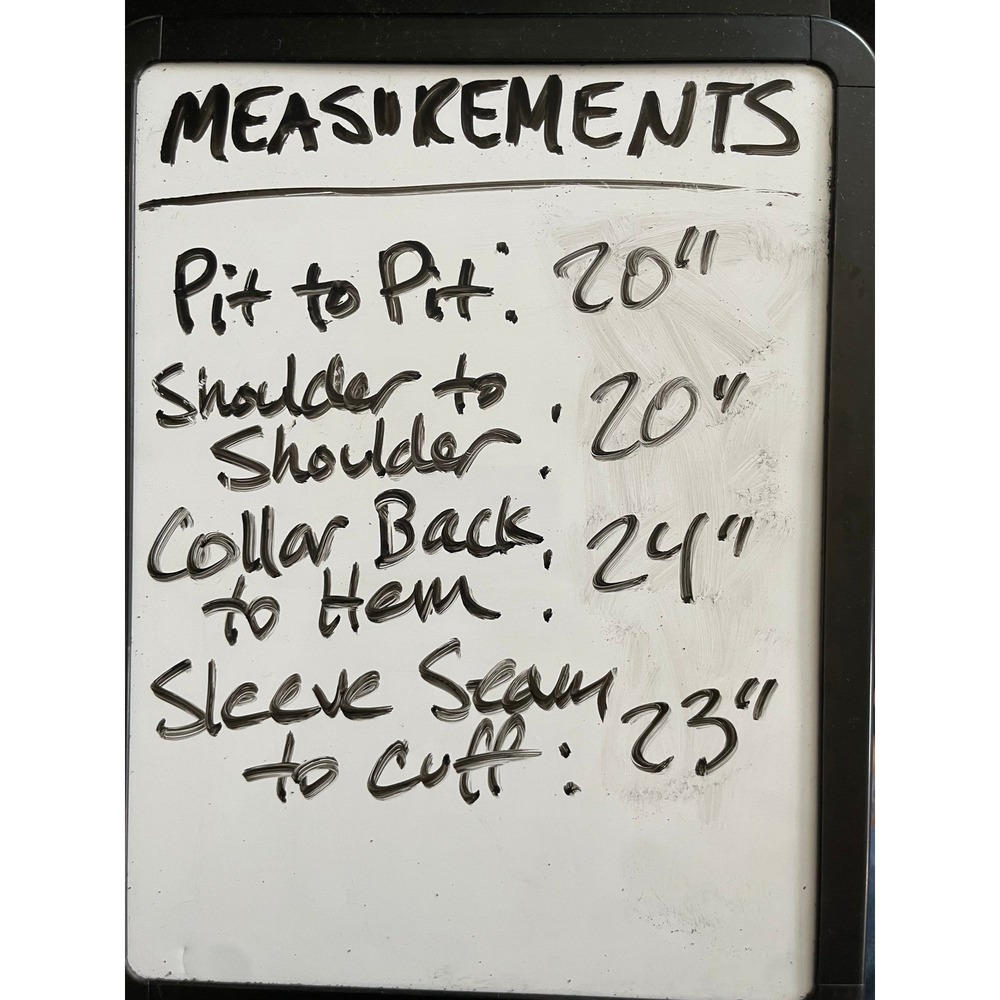 MEASUREMENTS
Pit to Pit: 20"
Shoulder to
Shoulder : 20"
Collar Back
to Hem : 24"
Sleeve Seam
to cuff: 23"